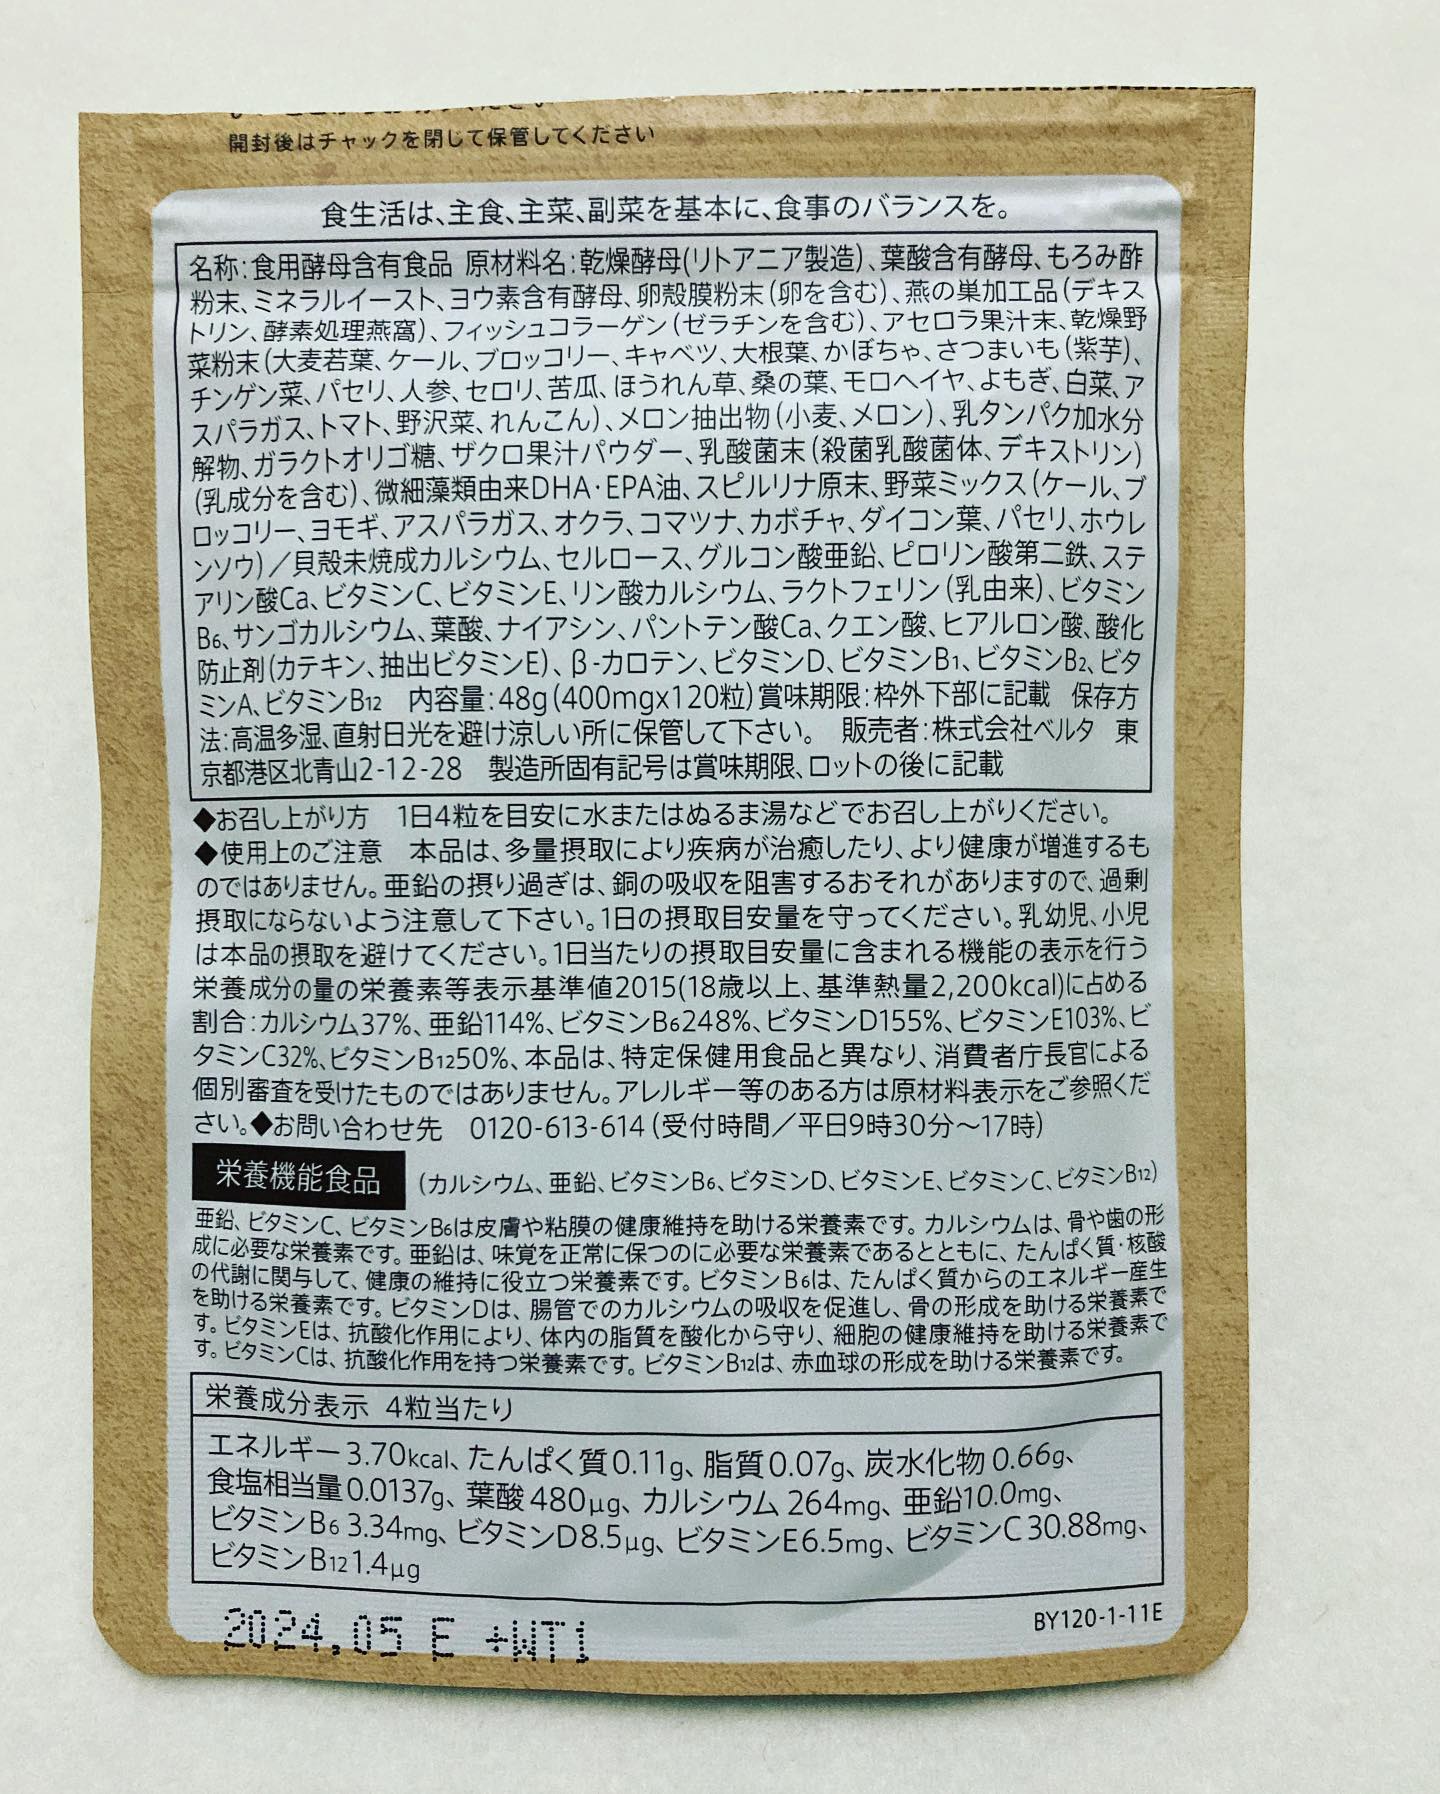 開封後はチャックを閉じて保管してください
食生活は、主食、主菜、副菜を基本に、食事のバランスを。
名称：食用酵母含有食品 原材料名：乾燥酵母(リトアニア製造)、葉酸含有酵母、もろみ酢
粉末、ミネラルイースト、ヨウ素含有酵母、卵殻膜粉末(卵を含む)、燕の巣加工品(デキス
トリン、酵素処理燕窩)、フィッシュコラーゲン(ゼラチンを含む)、アセロラ果汁末、乾燥野
菜粉末(大麦若葉、ケール、ブロッコリー、キャベツ、大根葉、かぼちゃ、さつまいも(紫芋)、
チンゲン菜、パセリ、人参、セロリ、苦瓜、ほうれん草、桑の葉、モロヘイヤ、よもぎ、白菜、ア
スパラガス、トマト、野沢菜、れんこん)、メロン抽出物(小麦、メロン)、乳タンパク加水分
解物、ガラクトオリゴ糖、ザクロ果汁パウダー、乳酸菌末(殺菌乳酸菌体、デキストリン)
(乳成分を含む)、微細藻類由来DHA・EPA油、スピルリナ原末、野菜ミックス(ケール、ブ
ロッコリー、ヨモギ、アスパラガス、オクラ、コマツナ、カボチャ、ダイコン葉、パセリ、ホウレ
ンソウ)／貝殻未焼成カルシウム、セルロース、グルコン酸亜鉛、ピロリン酸第二鉄、ステ
アリン酸Ca、ビタミンC、ビタミンE、リン酸カルシウム、ラクトフェリン(乳由来)、ビタミン
B6、サンゴカルシウム、葉酸、ナイアシン、パントテン酸Ca、クエン酸、ヒアルロン酸、酸化
防止剤(カテキン、抽出ビタミンE)、β-カロテン、ビタミンD、ビタミンB1、ビタミンB2、ビタ
ミンA、ビタミンB12 内容量：48g(400mgx120粒)賞味期限：枠外下部に記載 保存方
法：高温多湿、直射日光を避け涼しい所に保管して下さい。 販売者：株式会社ベルタ 東
京都港区北青山2-12-28 製造所固有記号は賞味期限、ロットの後に記載
◆お召し上がり方 1日4粒を目安に水またはぬるま湯などでお召し上がりください。
◆使用上のご注意 本品は、多量摂取により疾病が治癒したり、より健康が増進するも
のではありません。亜鉛の摂り過ぎは、銅の吸収を阻害するおそれがありますので、過剰
摂取にならないよう注意して下さい。1日の摂取目安量を守ってください。乳幼児、小児
は本品の摂取を避けてください。1日当たりの摂取目安量に含まれる機能の表示を行う
栄養成分の量の栄養素等表示基準値2015(18歳以上、基準熱量2,200kcal)に占める
割合：カルシウム37%、亜鉛114%、ビタミンB6248%、ビタミンD155%、ビタミンE103%、ビ
タミンC32%、ビタミンB1250%、本品は、特定保健用食品と異なり、消費者庁長官による
個別審査を受けたものではありません。アレルギー等のある方は原材料表示をご参照くだ
さい。◆お問い合わせ先 0120-613-614(受付時間／平日9時30分〜17時)
栄養機能食品 (カルシウム、亜鉛、ビタミンB6、ビタミンD、ビタミンE、ビタミンC、ビタミンB12)
亜鉛、ビタミンC、ビタミンB6は皮膚や粘膜の健康維持を助ける栄養素です。カルシウムは、骨や歯の形
成に必要な栄養素です。亜鉛は、味覚を正常に保つのに必要な栄養素であるとともに、たんぱく質・核酸
の代謝に関与して、健康の維持に役立つ栄養素です。ビタミンB6は、たんぱく質からのエネルギー産生
を助ける栄養素です。ビタミンDは、腸管でのカルシウムの吸収を促進し、骨の形成を助ける栄養素で
す。ビタミンEは、抗酸化作用により、体内の脂質を酸化から守り、細胞の健康維持を助ける栄養素で
す。ビタミンCは、抗酸化作用を持つ栄養素です。ビタミンB12は、赤血球の形成を助ける栄養素です。
栄養成分表示 4粒当たり
エネルギー3.70kcal、たんぱく質0.11g、脂質0.07g、炭水化物0.66g、
食塩相当量0.0137g、葉酸480μg、カルシウム264mg、亜鉛10.0mg、
ビタミンB6 3.34mg、ビタミンD8.5μg、ビタミンE6.5mg、ビタミンC30.88mg、
ビタミンB12 1.4μg
BY120-1-11E
2024,05 E +WT1